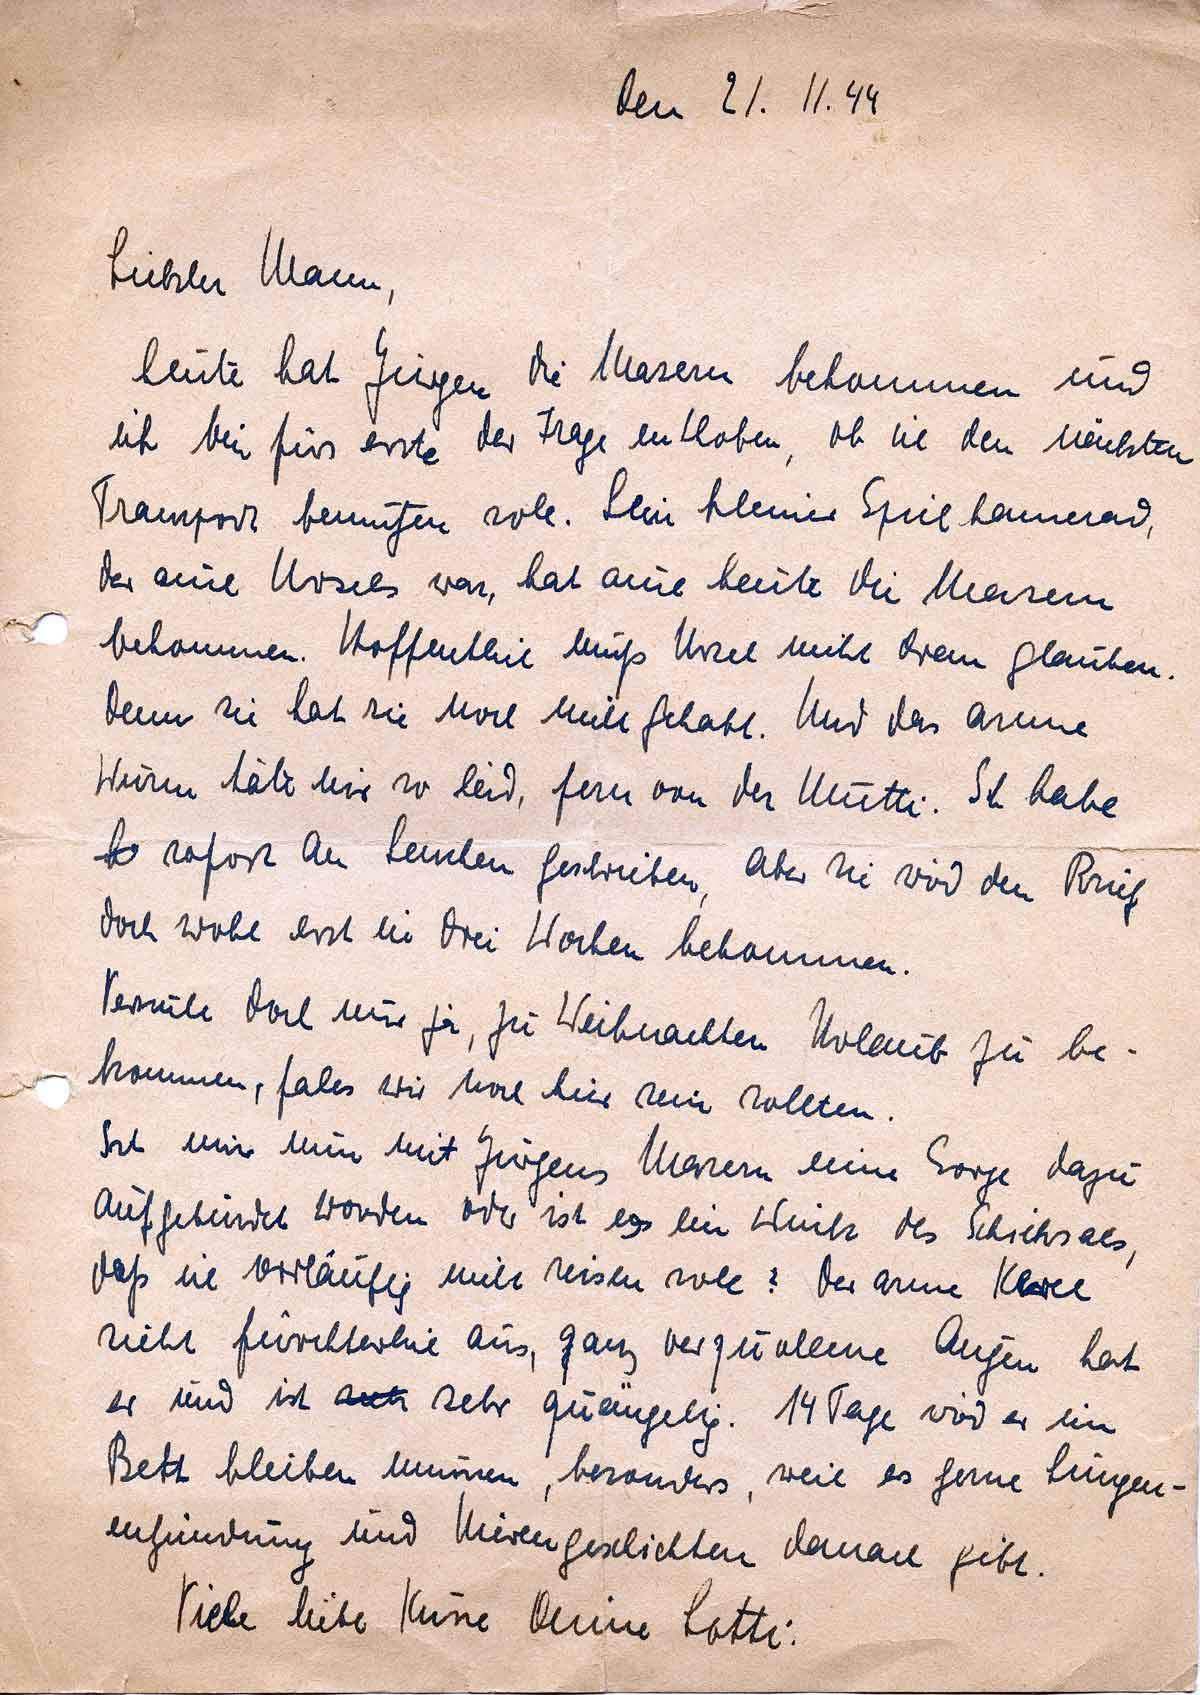 den 21. 11. 44
Liebster Mann,
heute hat Jürgen die Masern bekommen und
ich bin fürs erste der Frage enthoben, ob ich den nächsten
Transport benutzen soll. Sein kleiner Spielkamerad,
der auch Ursels war, hat auch heute die Masern
bekommen. Hoffentlich muß Ursel nicht dran glauben.
Denn sie hat sie noch nicht gehabt. Und das arme
Wurm täte mir so leid, fern von der Mutti. Ich habe
sofort an Lenchen geschrieben, aber sie wird den Brief
doch wohl erst in drei Wochen bekommen.
Versuch doch nur ja, zu Weihnachten Urlaub zu be-
kommen, falls wir noch hier sein sollten.
Ist mir nun mit Jürgens Masern eine Sorge dazu
aufgebürdet worden oder ist es ein Wink des Schicksals,
daß ich vorläufig nicht reisen soll? Der arme Kerl
sieht fürchterlich aus, ganz verquollene Augen hat
er und ist sehr quängelig. 14 Tage wird er im
Bett bleiben müssen, besonders, weil es gerne Lungen-
entzündung und Nierengeschichten danach gibt.
Viele liebe Küsse Deine Lotti.